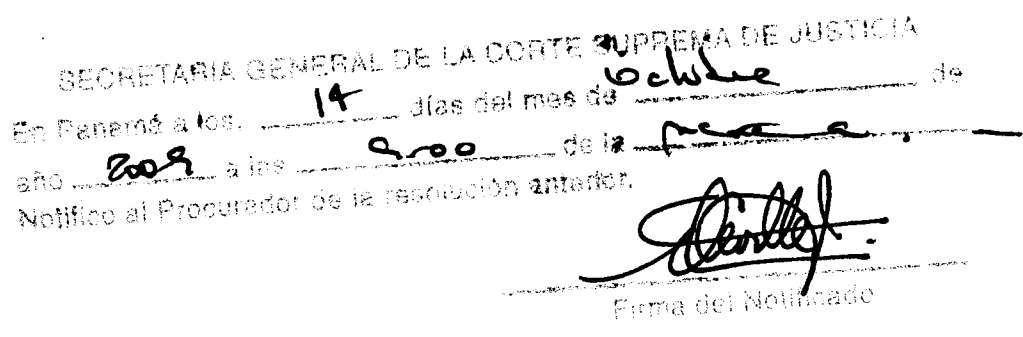 SECRETARIA GENERAL DE LA CORTE SUPREMA DE JUSTICIA
En Panamá a los. 14 días del mes de Octubre de
año 2009 a las 9:00 de la
Notifico al Procurador de la resolución anterior.
Firma del Notificado